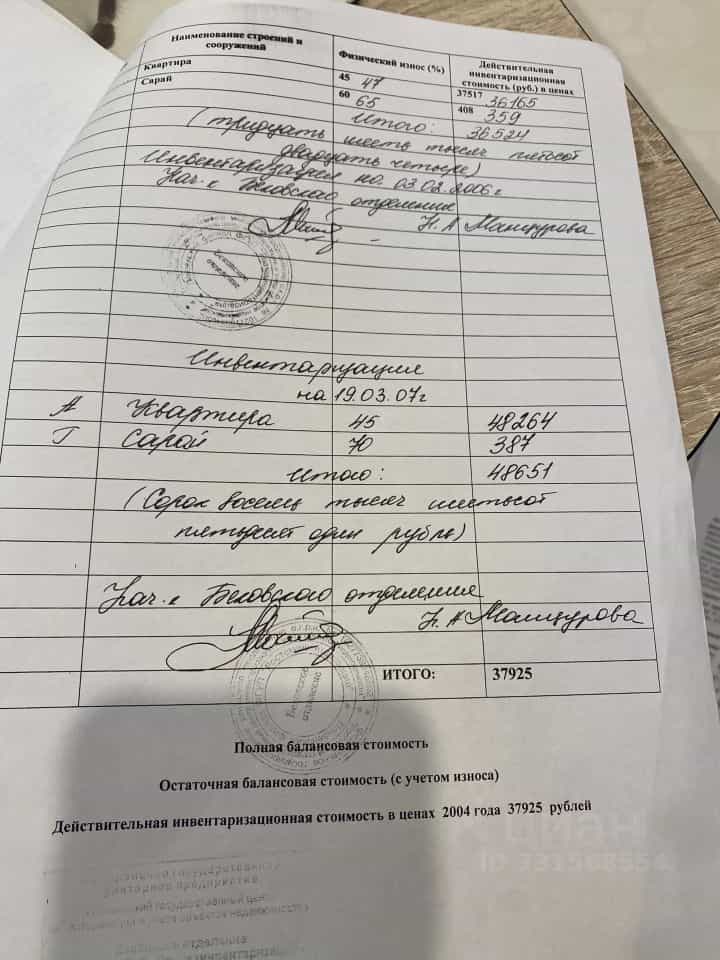 Наименование строений и сооружений
Физический износ (%)
Действительная инвентаризационная стоимость (руб.) в ценах
Квартира 45 47 37517 36165
Сарай 60 65 408 359
Итого: 36524
(тридцать шесть тысяч пятьсот
двадцать четыре)
Инвентаризация по. 03.02.2006 г
Нач-к Бековского отделения
Н. А Мансурова
Инвентаризация
на 19.03.07г
А Квартира 45 48264
Г Сарай 70 387
Итого: 48651
(Сорок восемь тысяч шестьсот
пятьдесят один рубль)
Нач-к Бековского отделения
Н. А Мансурова
Бековское
отделение
ИТОГО: 37925
Полная балансовая стоимость
Остаточная балансовая стоимость (с учетом износа)
Действительная инвентаризационная стоимость в ценах 2004 года 37925 рублей
циан